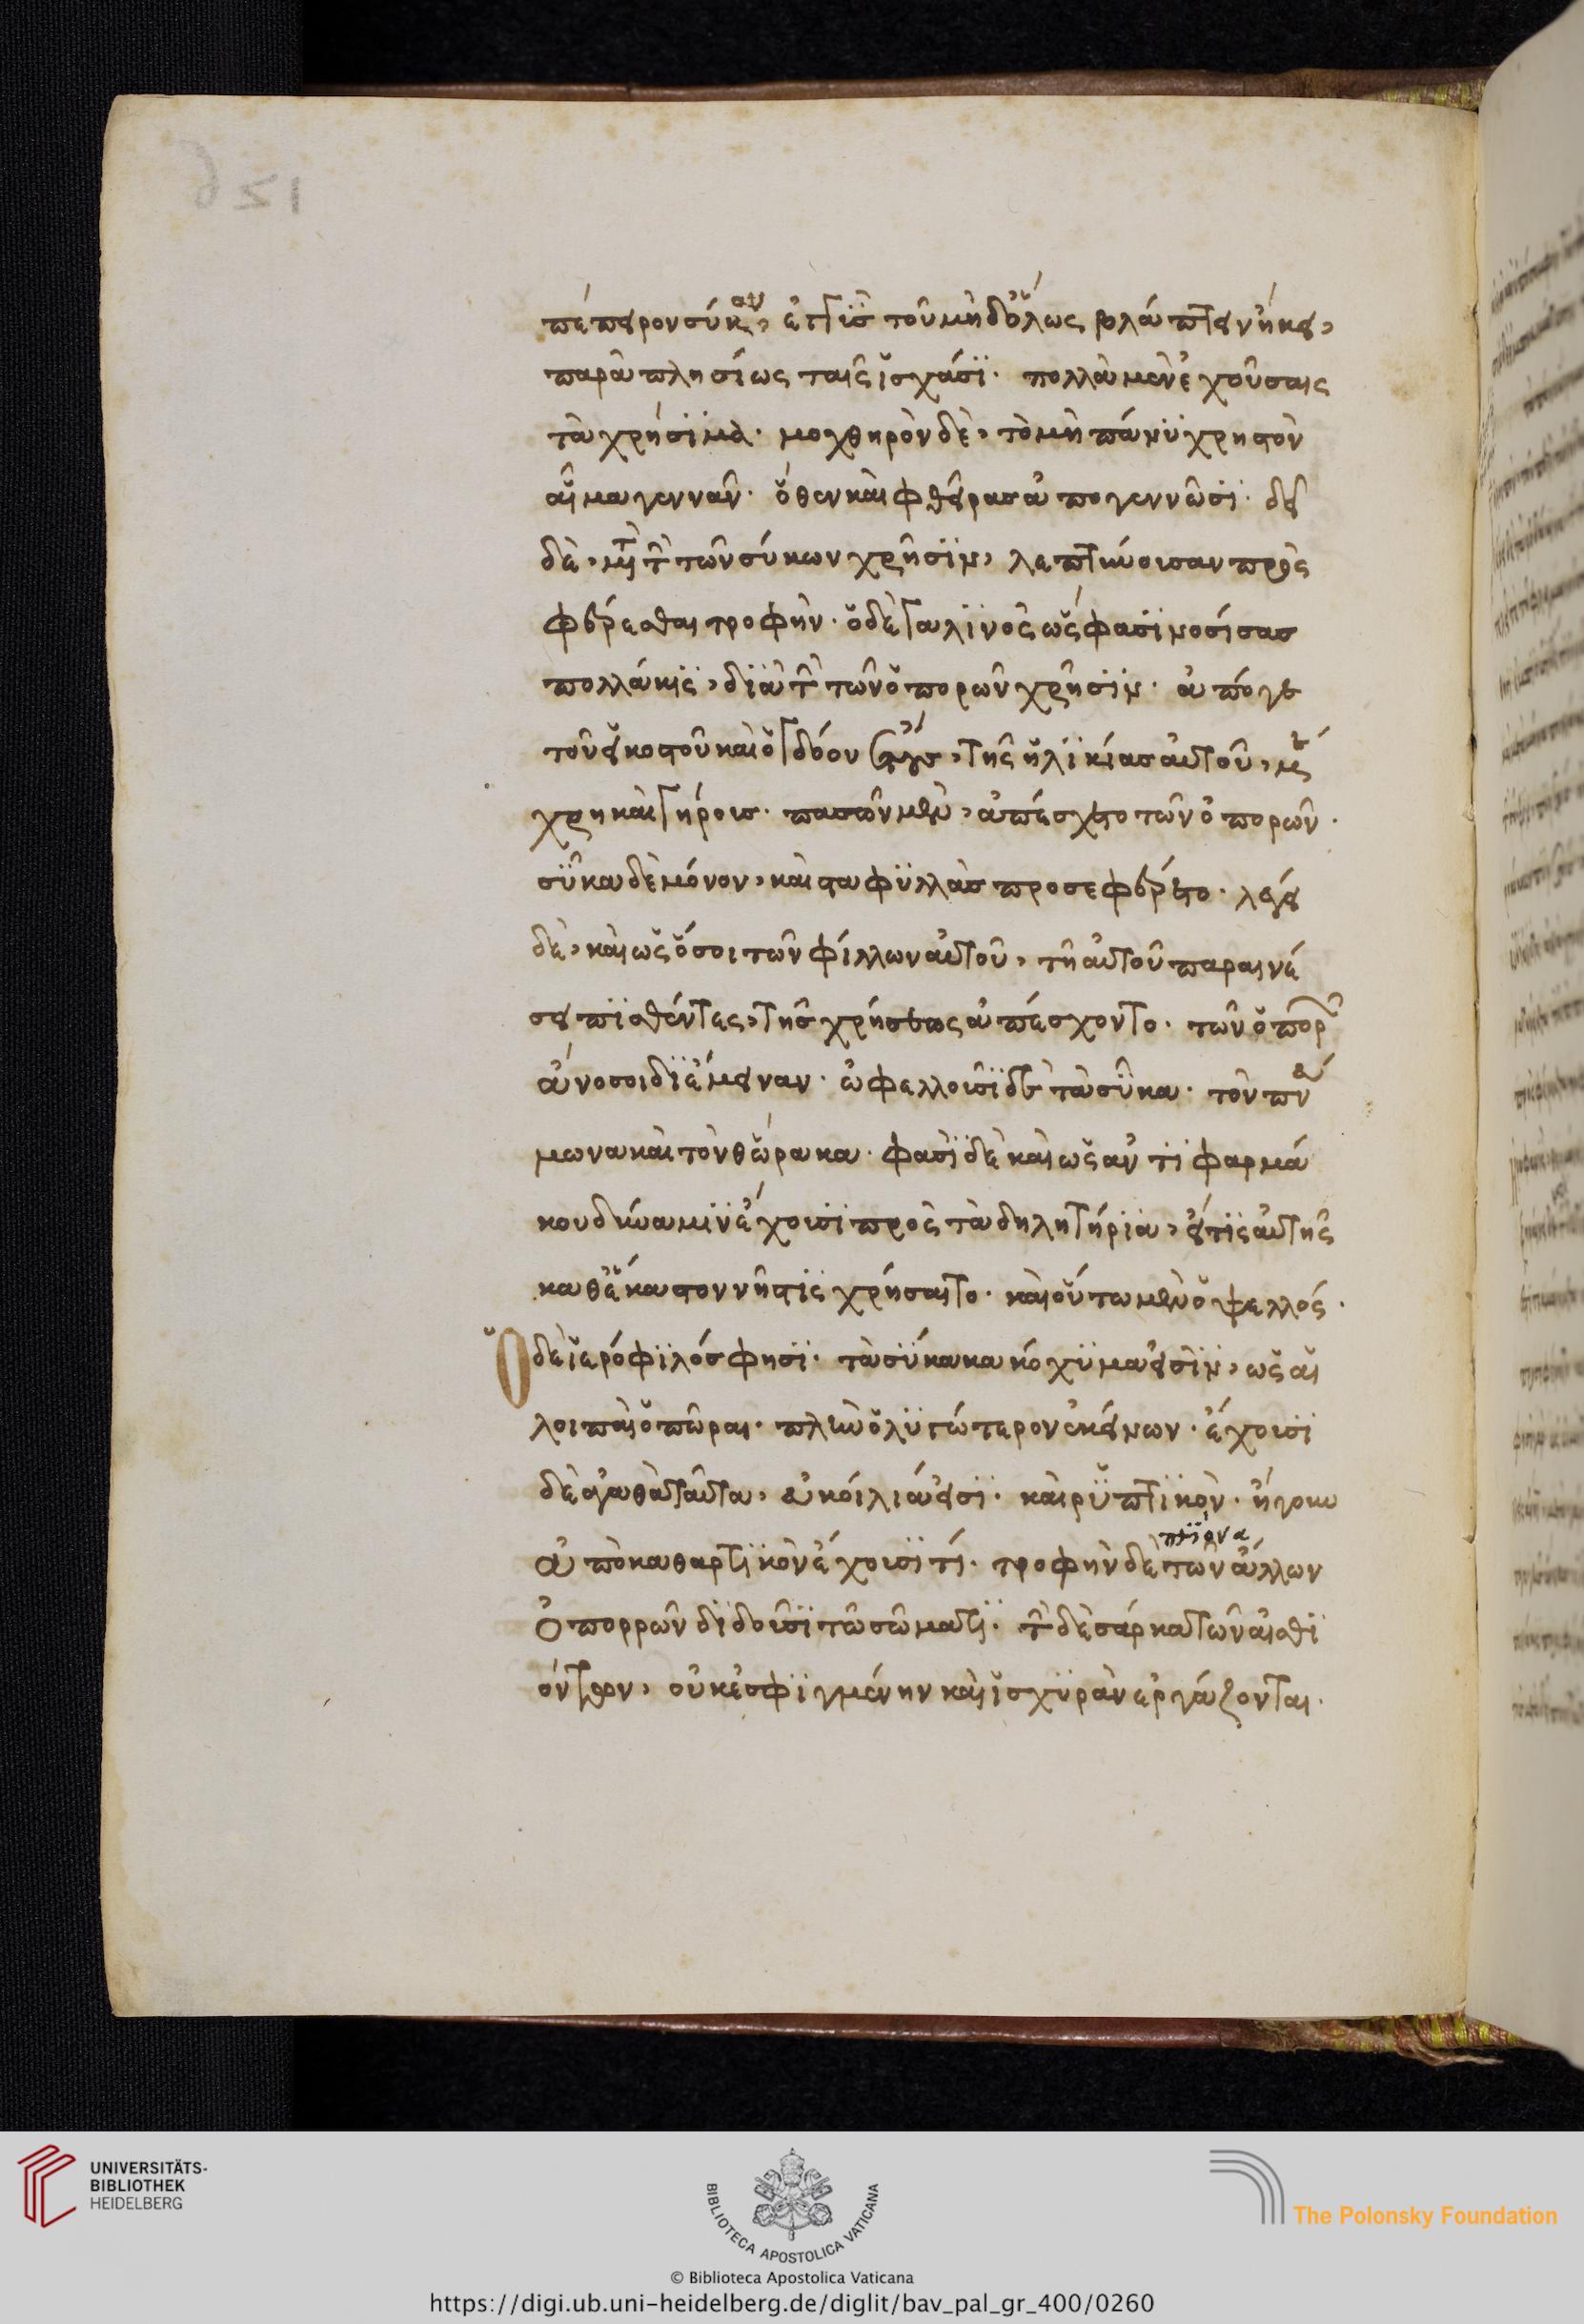 πέπειρον σύκον, ἐπῒ τοῦ μὴδὅλως βλάπτειν ἥκει,
παρὰπλησίως ταῖς ἰσχάσϊ. πολλὰ μὲν ἐχούσαις
τὰ χρήσϊμα. μοχθηρὸν δὲ, τὸ μὴ πάνϋ χρηστὸν
αἷμα γεννᾶν. ὅθεν καὶ φθεῖρασ ἀπογεννῶσϊ. δεῖ
δὲ, μετὰ τὴν τῶν σύκων χρῆσϊν, λεπτύνουσαν προσ
φέρεσθαι τροφήν. ὁ δὲ γαλϊνὸς ὥς φασϊ νοσίσασ
πολλάκϊς, διὰ τὴν τῶν ὀπορῶν χρῆσϊν. ἀπό γε
τοῦ εἰκοστοῦ καὶ ὀγδόου τῆς ἡλϊκίασ αὐτοῦ, μέ
χρη καὶ γήρουσ. πασῶν μὲν, ἀπέσχετο τῶν ὀπορῶν.
σῦκα δὲ μόνον, καὶ σταφϋλλὰσ προσεφέρετο. λέγει
δὲ, καὶ ὡς ὅσοι τῶν φίλλων αὐτοῦ, τῆ αὐτοῦ παραινέ
σει πϊσθέντες, τῆσ χρήσεως ἀπέσχοντο. τῶν ὀπορῶν
ἄνοσοι δϊέμειναν. ὠφελλοῦσϊ δὲ τὰ σῦκα. τὸν πνεύ
μωνα καὶ τὸν θώρακα. φασὶ δὲ καὶ ὡς ἀντϊφαρμά
κου δύναμϊν ἔχουσϊ πρὸς τὰ δηλητήρϊα, εἴ τϊς αὐτῆς
καθἕκαστον νῆστϊς χρήσαιτο. καὶ οὕτω μὲν ὁ ψελλός.
Ὁ δὲ ἱερόφϊλόσ φησϊ. τὰ σΰκα κακόχϋμα εἰσϊν, ὡς αἱ
λοιπαὶ ὀπῶραι. πλὴν ὀλϋγώτερον ἐκείνων. ἔχουσϊ
δὲ ἀγαθὰ ταῦτα, εὐκόιλια εἰσϊ. καὶ ρϋπτϊκὸν. ἤγουν
ἀπὸκαθαρτϊκὸν ἔχουσϊ τί. τροφὴν δὲ τῶν ἄλλων
πϊονα
ὀπορρῶν δϊδοῦσϊ τῶ σώματϊ. τὴν δὲ σάρκα τῶν αἰσθϊ
όντων, οὐκ ἐσφϊγμένην καὶ ἰσχϋρὰν ἐργάζονται.
126
UNIVERSITÄTS-
BIBLIOTHEK
HEIDELBERG
BIBLIOTECA APOSTOLICA VATICANA
The Polonsky Foundation
© Biblioteca Apostolica Vaticana
https://digi.ub.uni-heidelberg.de/diglit/bav_pal_gr_400/0260